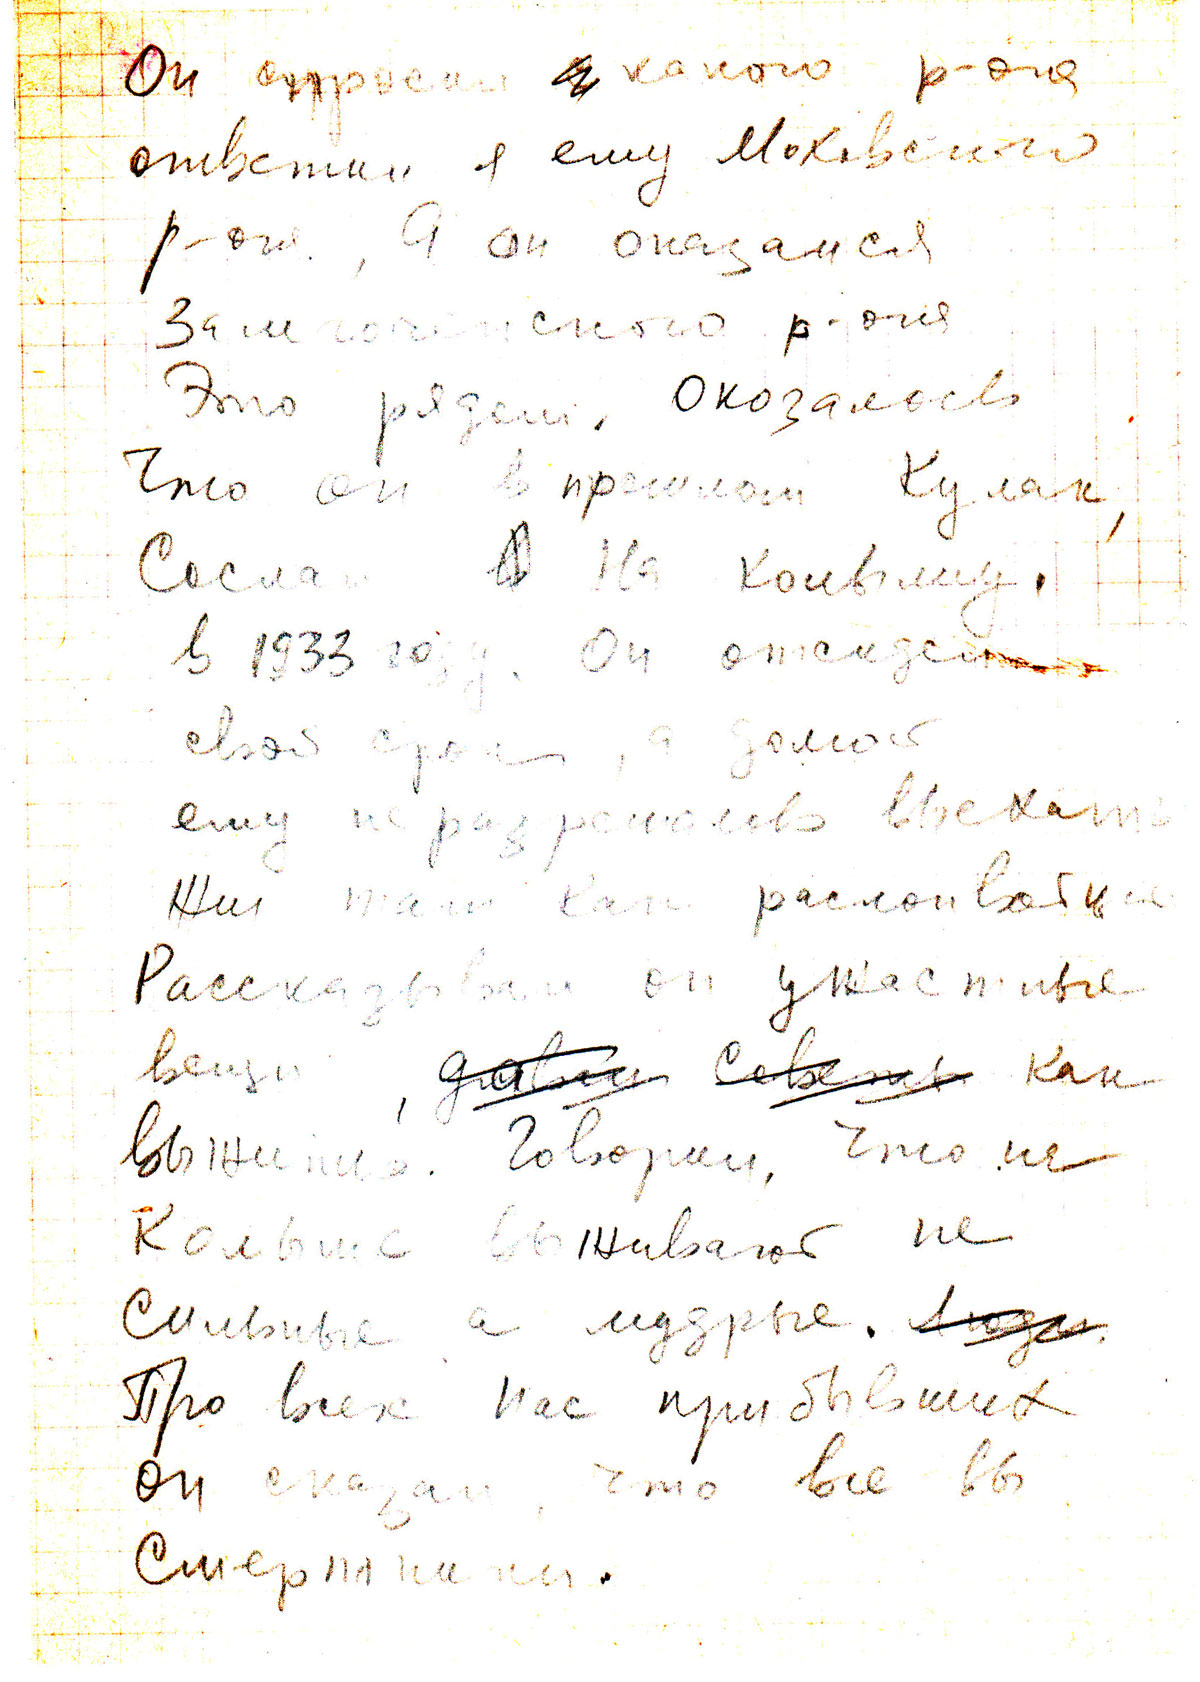 Он спросил какого р-она
ответил я ему Моховского
р-она, А он оказался
р-она
Это рядом. Оказалось
Что он в прошлом Кулак,
Сослан На Колыму.
в 1933 году. Он отсидел
свой срок, а домой
ему не разрешалось выехать
Жил там как
Рассказывал он ужастные
вещи, как
выжить. Говорил, что на
Колыме выживают не
Сильные а мудрые.
Про всех нас прибывших
он сказал, что все вы
Смертники.